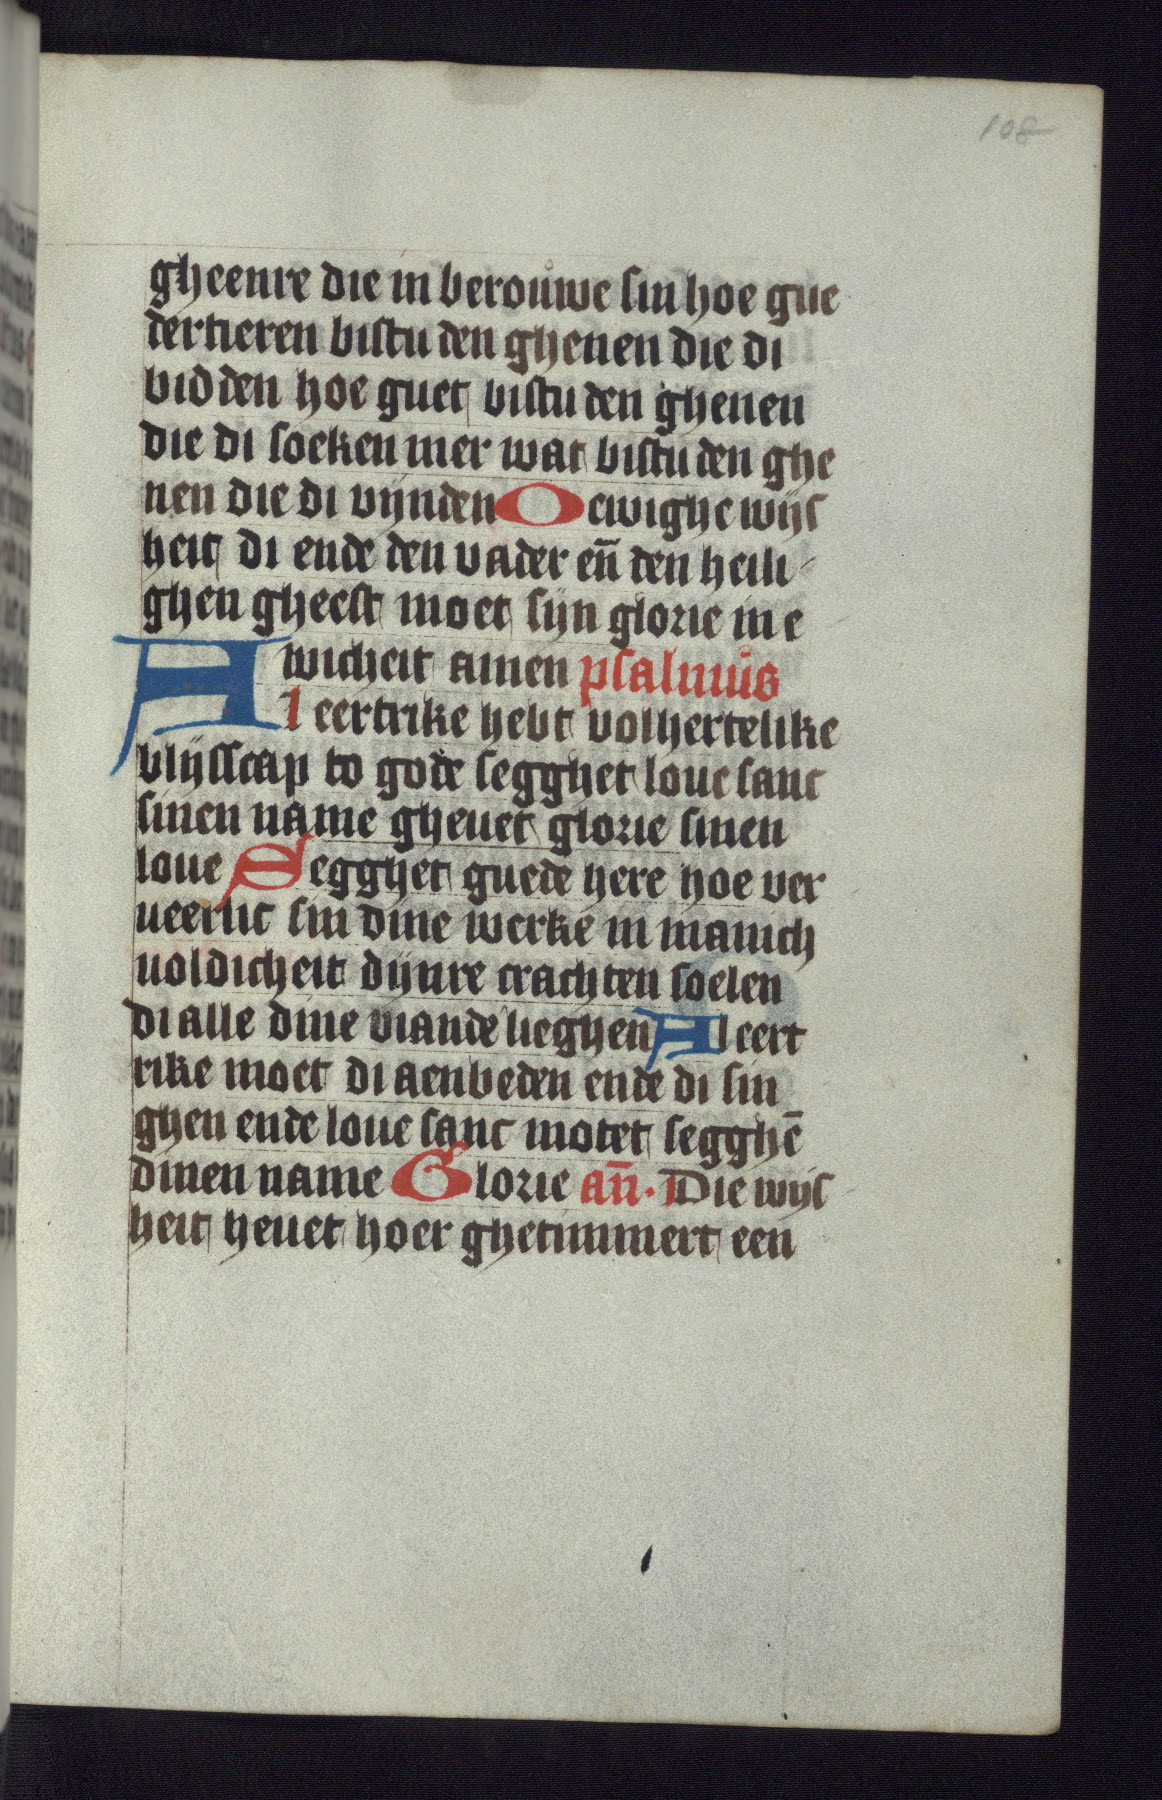 108
gheenre die in berouwe sin hoe gue
dertieren bistu den ghenen die di
bidden hoe guet bistu den ghenen
die di soeken mer wat bistu den ghe
nen die di vijnden O ewighe wijs
heit di ende den vader en̄ den heili
ghen gheest moet sijn glorie in e
wicheit amen psalmus
Al eertrike hebt volhertelike
blijsscap to gode segghet loue sanc
sinen name gheuet glorie sinen
loue Segghet guede here hoe ver
ueerlic sin dine werke in manich
uoldicheit dijnre crachten soelen
di alle dine viande lieghen Al eert
rike moet di aenbeden ende di sin
ghen ende loue sanc motet segghē
dinen name Glorie an̄. Die wijs
heit heuet hoer ghetimmert een